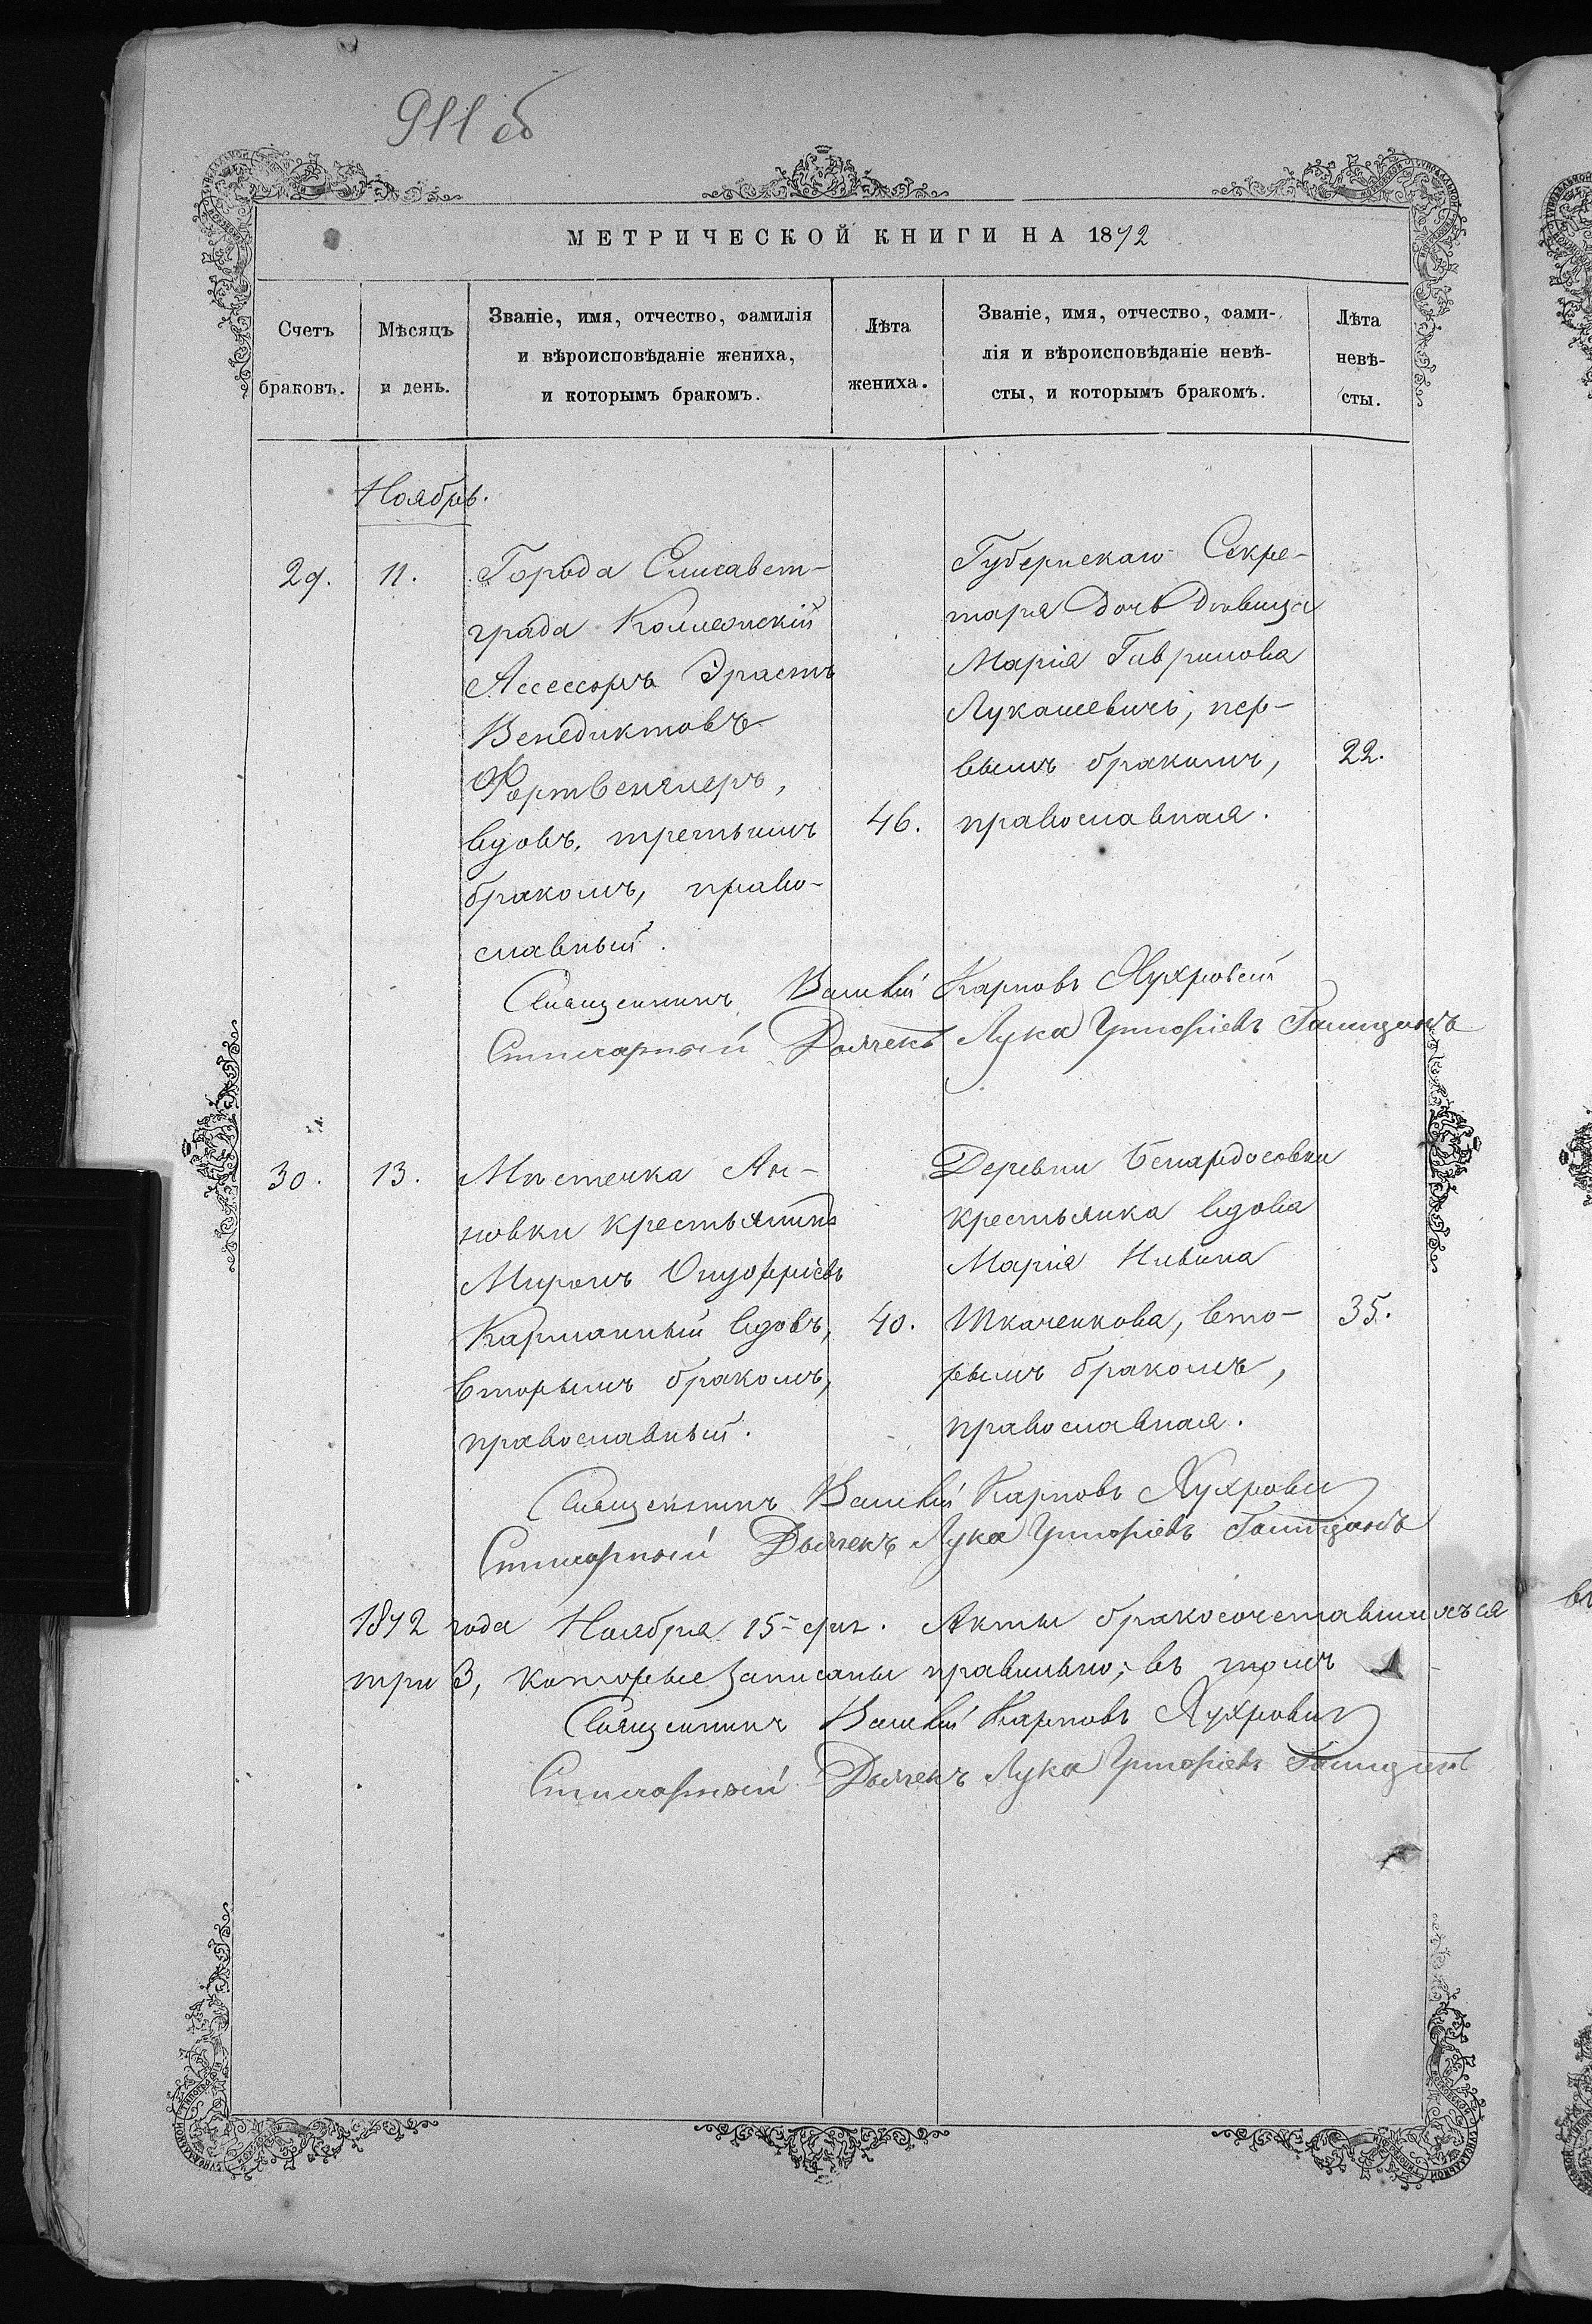 911 об
МЕТРИЧЕСКОЙ КНИГИ НА 1872
Счетъ браковъ.
Мѣсяцъ и день.
Званіе, имя, отчество, фамилія
и вѣроисповѣданіе жениха,
и которымъ бракомъ.
Лѣта жениха.
Званіе, имя, отчество, фами-
лія и вѣроисповѣданіе невѣ-
сты, и которымъ бракомъ.
Лѣта невѣ-
сты.
Ноябрь.
29.
11.
Города Елисавет-
града Коллежскій
Ассессоръ Эрастъ
Венедиктовъ
Фортвенглеръ,
вдовъ, третьимъ
бракомъ, право-
славный.
46.
Губернскаго Секре-
таря дочь дѣвица
Марія Гаврилова
Лукашевичъ, пер-
вымъ бракомъ,
православная.
22.
Священникъ Василій Карповъ
Стихарный Дьячекъ Лука Григоріевъ
30.
13.
Мѣстечка Ан-
новки крестьянинъ
Миронъ Онуфріевъ
Карманный вдовъ,
вторымъ бракомъ,
православный.
40.
Деревни
крестьянка вдова
Марія
Ткаченкова, вто-
рымъ бракомъ,
православная.
35.
Священникъ Василій Карповъ
Стихарный Дьячекъ Лука Григоріевъ
1872 года Ноября 15 дня. Акты бракосочетавшихъся
три 3, которые записаны правильно; въ томъ
Священникъ Василій Карповъ
Стихарный Дьячекъ Лука Григоріевъ